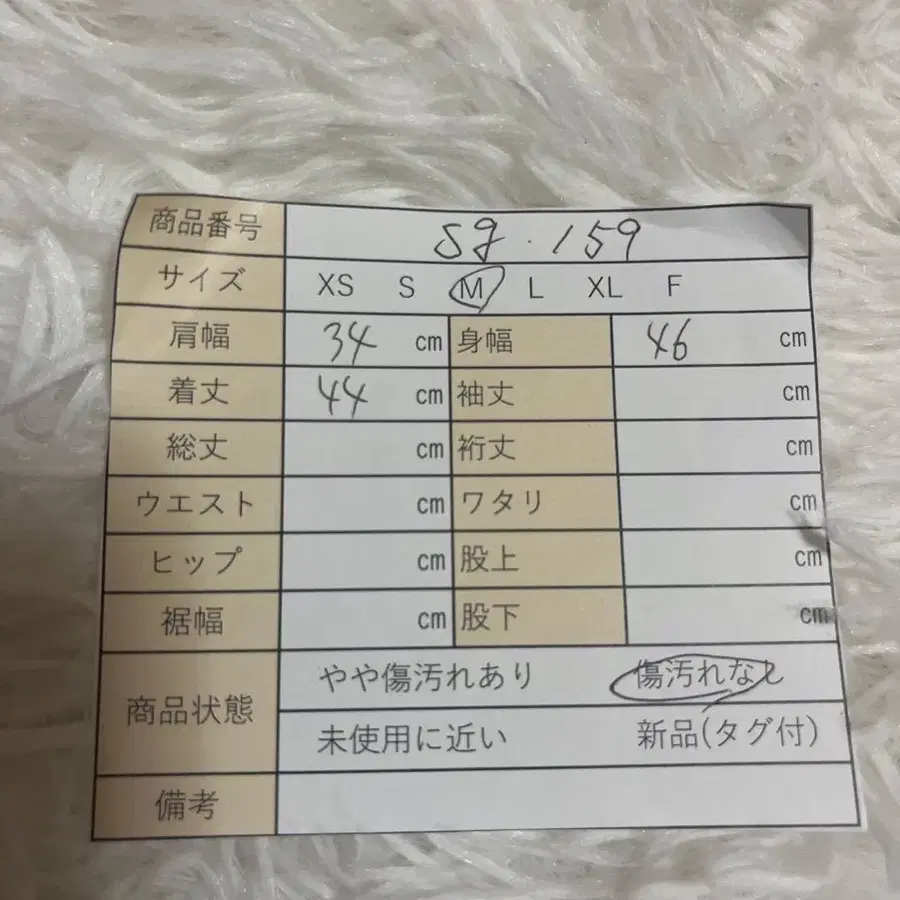 商品番号 sg・159
サイズ XS S M L XL F
肩幅 34 cm 身幅 46 cm
着丈 44 cm 袖丈 cm
総丈 cm 裄丈 cm
ウエスト cm ワタリ cm
ヒップ cm 股上 cm
裾幅 cm 股下 cm
商品状態 やや傷汚れあり 傷汚れなし
未使用に近い 新品(タグ付)
備考